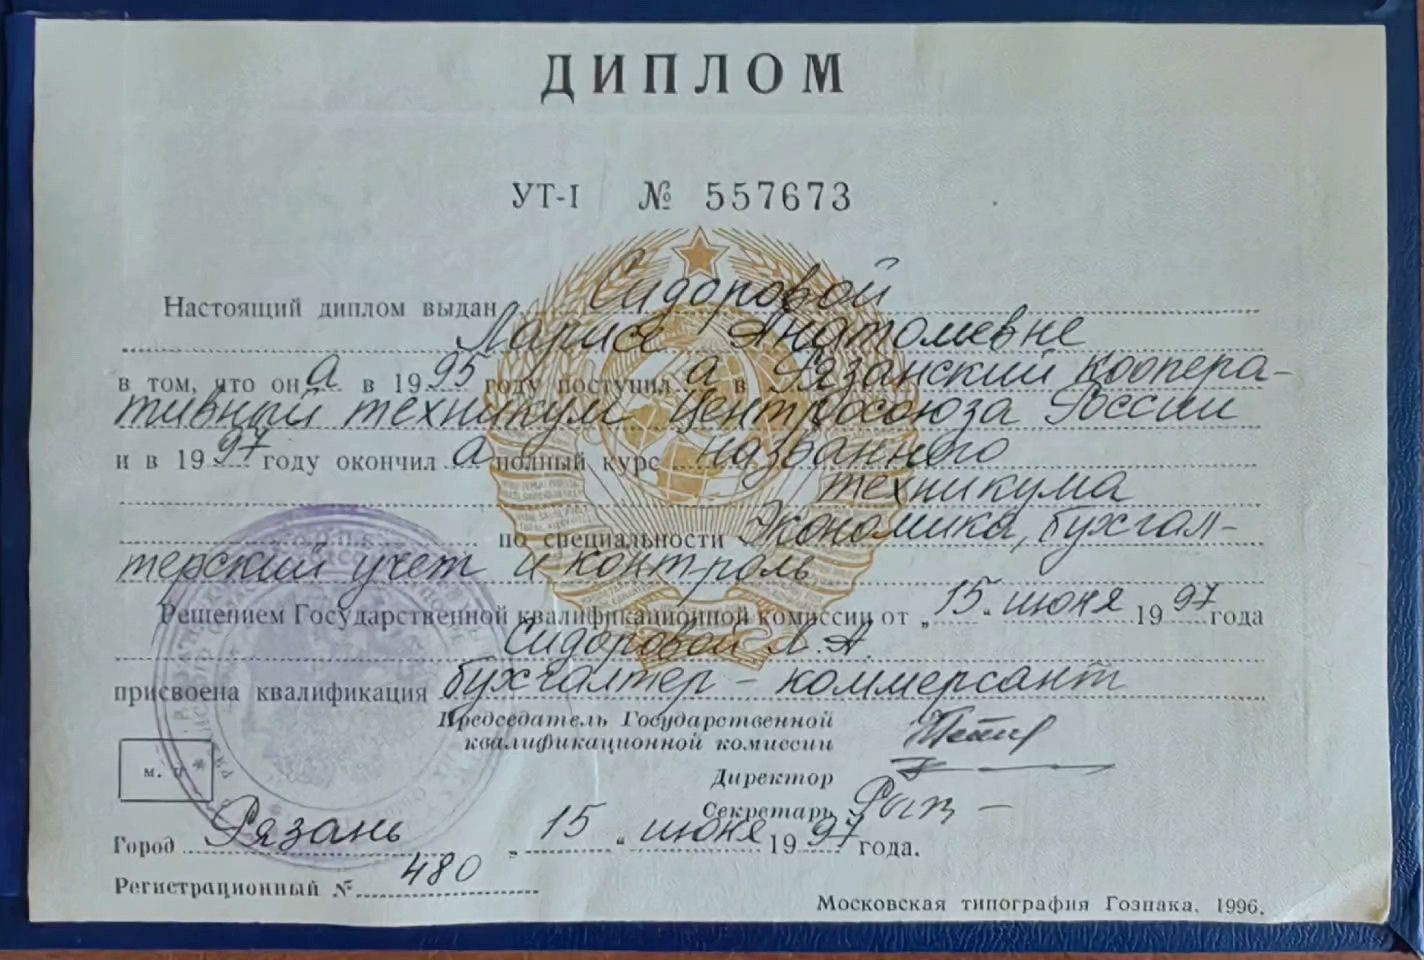 ДИПЛОМ
УТ-I № 557673
Настоящий диплом выдан Сидоровой
Ларисе Анатольевне
в том, что она в 1995 году поступила в Рязанский коопера-
тивный техникум Центросоюза России
и в 1997 году окончила полный курс названного
техникума
по специальности Экономика, бухгал-
терский учет и контроль
Решением Государственной квалификационной комиссии от „15“ июня 1997 года
Сидоровой Л. А.
присвоена квалификация бухгалтер - коммерсант
Председатель Государственной
квалификационной комиссии
Директор
Секретарь
м.
Город Рязань „15“ июня 1997 года.
Регистрационный № 480
Московская типография Гознака. 1996.